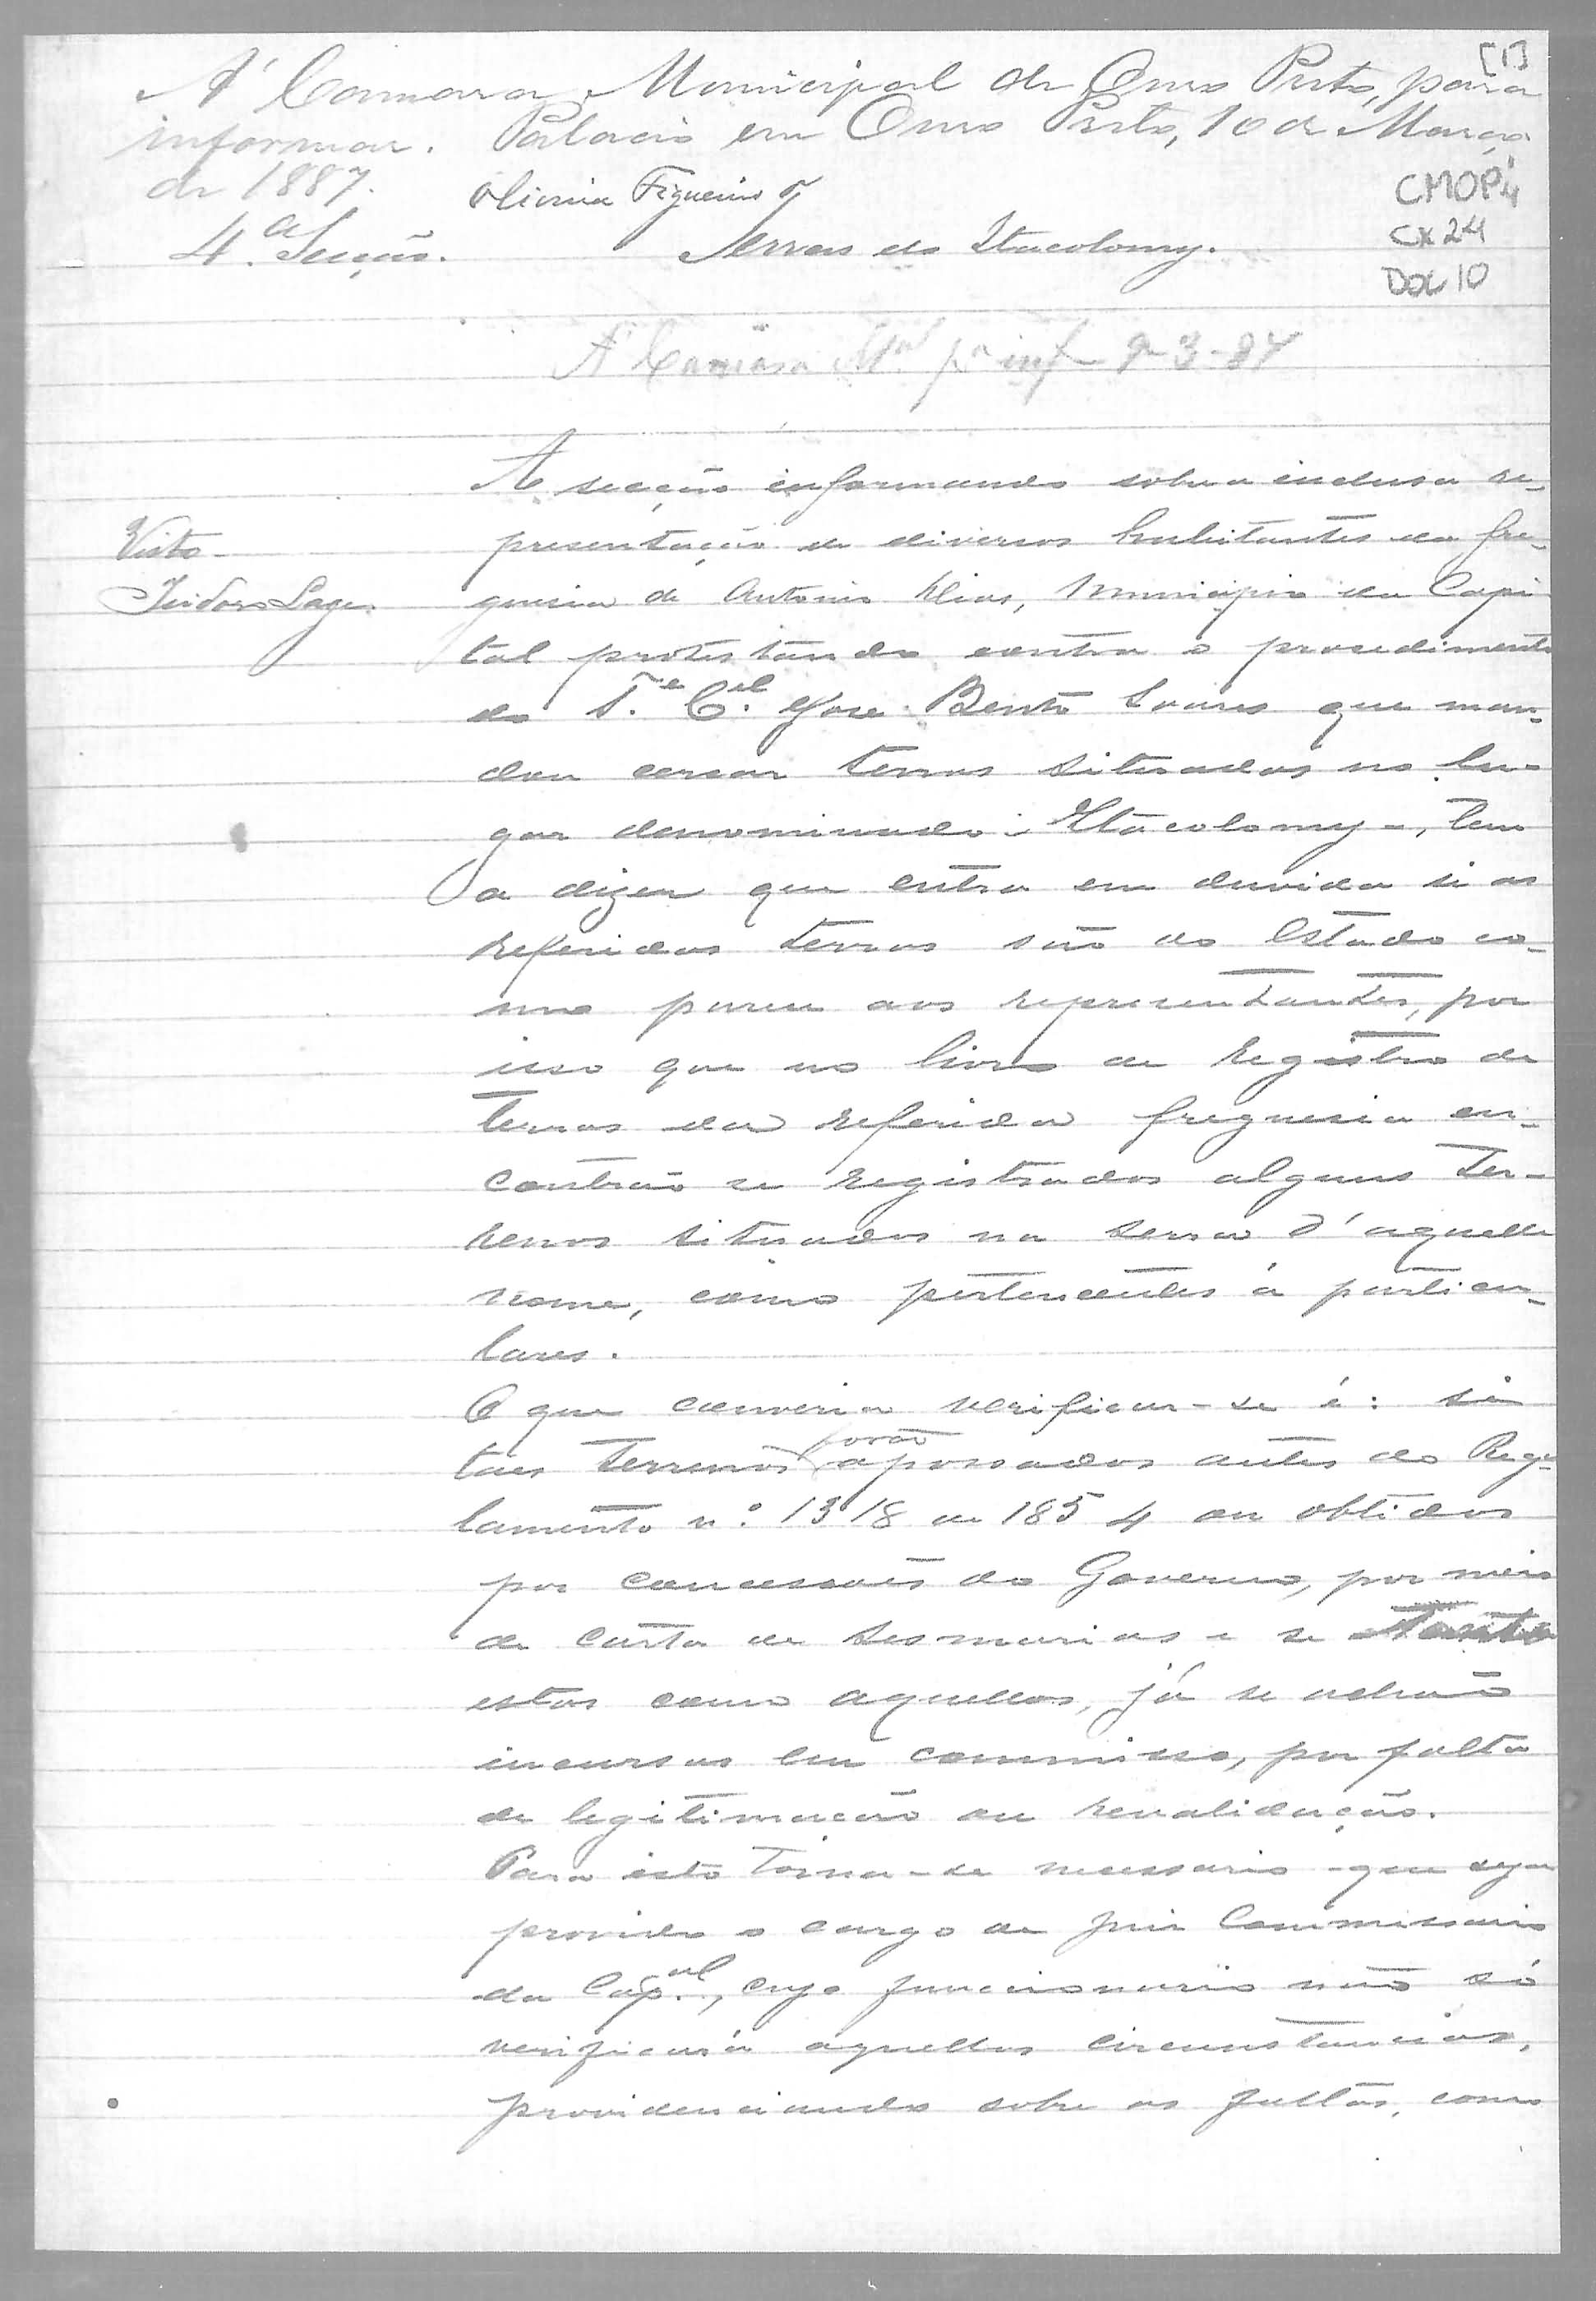 [1]
A' Camara Municipal de Ouro Preto, para
informar. Palacio em Ouro Preto, 10 de Março
de 1887.
CMOP
CX 24
DOC 10
4.a Secção.
Serras do Itacolomy.
A' Camara M.al p.a inf 9-3-87
Visto
A secção informando sobre a inclusa re-
presentação de diversos habitantes da fre-
guesia de Antonio Dias, Municipio da Capi
tal protestando contra o procedimento
do T.e C.el José Bento Soares que man-
dou cercar terras situadas no lu-
gar denominado - Itacolomy -, tem
a dizer que entra em duvida si as
referidas terras são do Estado co-
mo parece aos representantes, por
isso que no livro de registro de
terras da referida freguesia en-
contrão se registrados alguns ter-
renos situados na serra d'aquelle
nome, como pertencentes á particu-
lares.
O que convem verificar-se é: si
taes terrenos forão apossados antes do Regu
lamento n.o 1318 de 1854 ou obtidos
por concessões do Governo, por meio
de carta de sesmarias e se
estas como aquellas, já se achão
incursas em commisso, por falta
de legitimação ou revalidação.
Para isto torna-se necessario que seja
provido o cargo de Juiz Commissario
da Cap.al, cujo funccionario não só
verificará aquellas circunstancias,
providenciando sobre as faltas, como